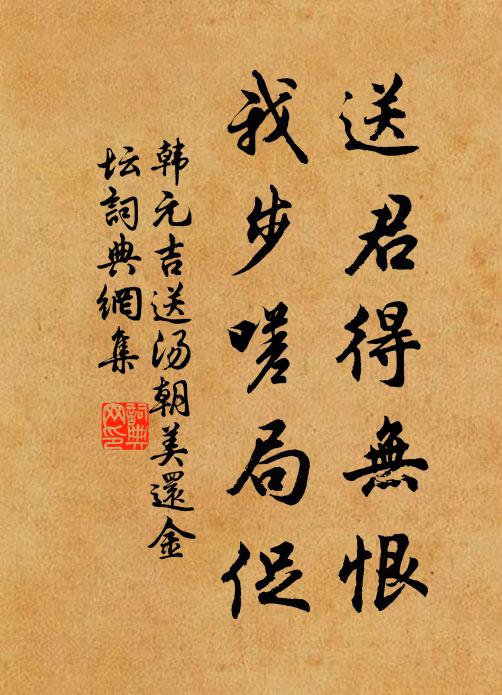 送君得無恨
我步嗟局促
韩元吉送汤朝美還金
坛詞典網集
詞典
网印